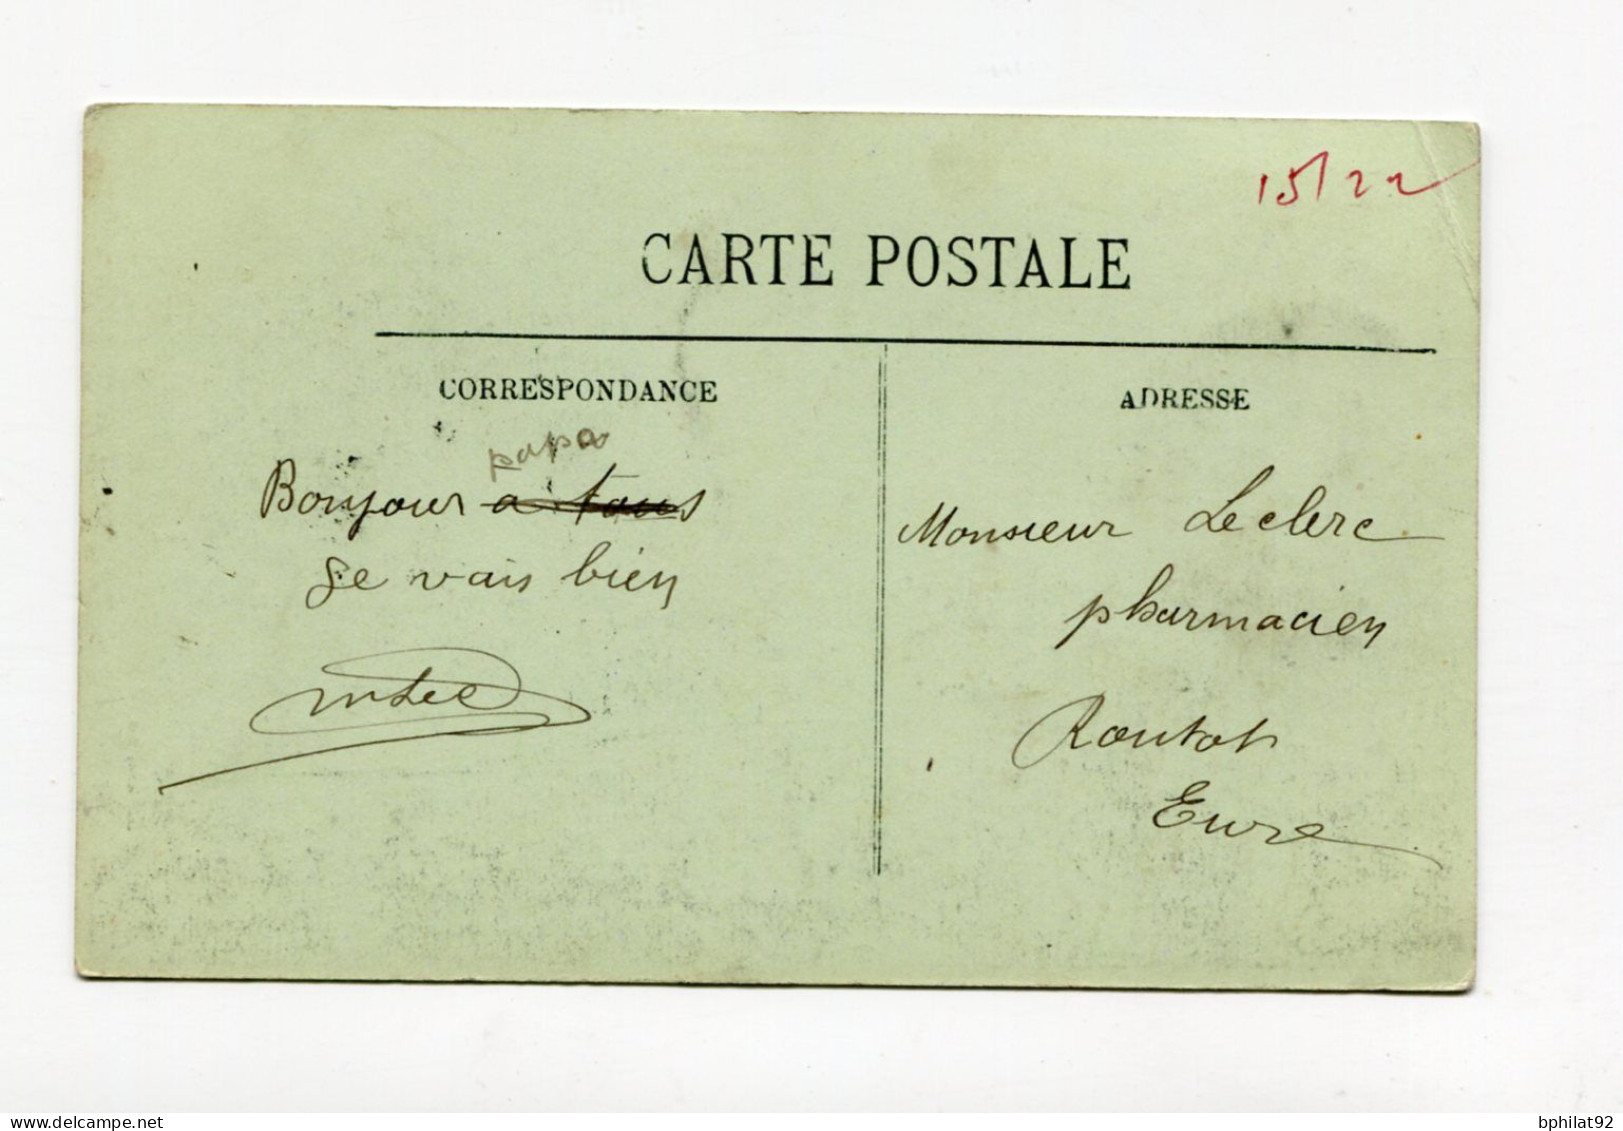 15/22
CARTE POSTALE
CORRESPONDANCE
papa
Bonjour a tous
Je vais bien
ADRESSE
Monsieur Leclerc
pharmacien
Routot
Eure
delcampe.net
bphilat92